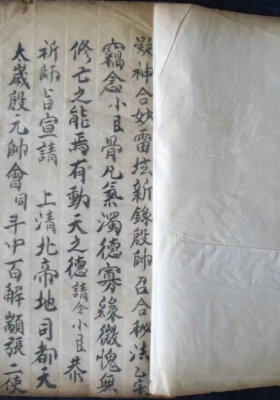 凝神合妙雷坛新錄殷帥召合秘法乙宗
竊念小臣骨凡氣濁德寡緣微愧無
修亡之能焉有動天之德請令小臣恭
祈師旨宣請　上清北帝地司都天
太歲殷元帥會同斗中百解顓張二使